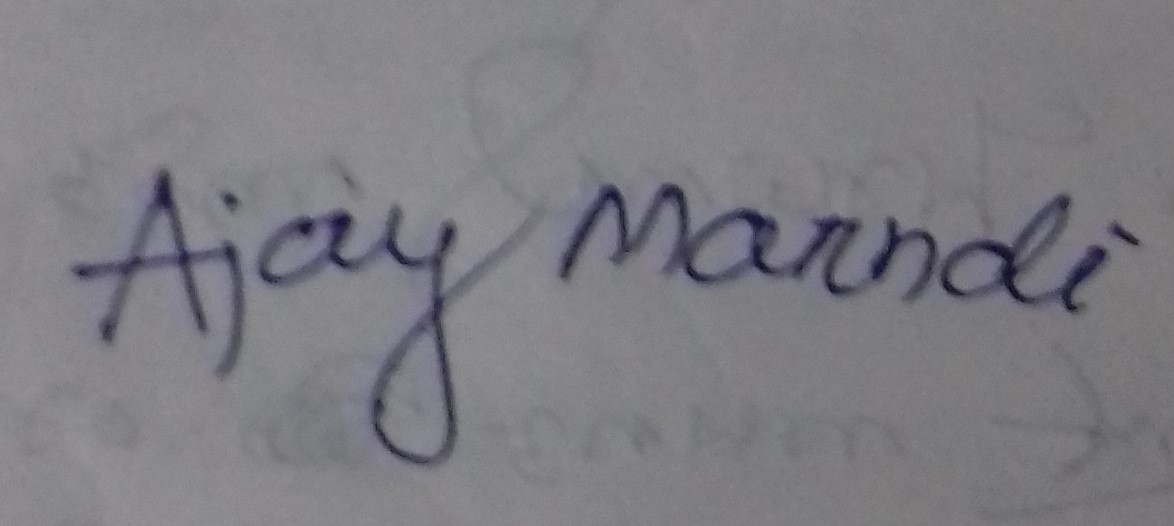 Ajay Marndi